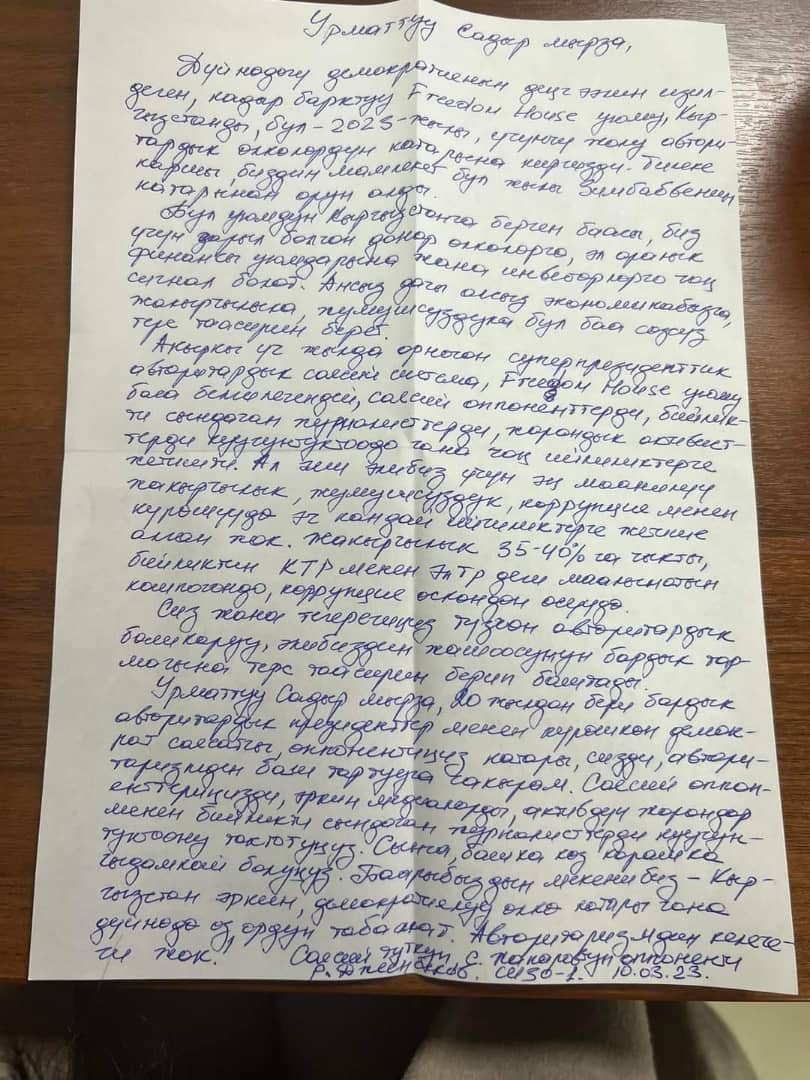 Урматтуу Садыр мырза,
Дүйнөдөгү демократиянын деңгээлин изил-
деген, кадыр барктуу Freedom House уюму, Кыр-
гызстанды, бул - 2023-жылы, үчүнчү жолу автори-
тардык өлкөлөрдүн катарына киргизди. Тилеке
каршы, биздин мамлекет бул жылы Зимбабвенин
катарынан орун алды.
Бул уюмдун Кыргызстанга берген баасы, биз
үчүн дарыл болгон донор өлкөлөргө, эл аралык
финансы уюмдарына жана инвесторлорго чоң
сигнал болот. Ансыз дагы алсыз экономикабызга,
жакырчылыкка, жумушсуздукка бул баа сөзсүз
терс таасирин берет.
Акыркы үч жылда орногон суперпрезиденттик
авторитардык саясий система, Freedom House уюму
баса белгилегендей, саясий оппоненттерди, бийлик-
ти сындаган журналисттерди, жарандык активист-
терди куугунтуктоодо гана чоң ийгиликтерге
жетишти. Ал эми элибиз үчүн эң маанилүү
жакырчылык, жумушсуздук, коррупция менен
күрөшүүдө эч кандай ийгиликтерге жетише
алган жок. Жакырчылык 35-40% га чыкты,
бийликтин КТР менен ЭлТР деги маанынатын
кампоғондо, коррупция өскөндөн өсүүдө.
Сиз жана тегерегиңиз түзгөн авторитардык
башкаруу, элибиздин жашоосунун бардык тар-
магына терс таасирин берип баштады.
Урматтуу Садыр мырза, 20 жылдан бери бардык
авторитардык президенттер менен күрөшкөн демок-
рат саясатчы, оппонентиңиз катары, сизди, автори-
таризмден баш тартууга чакырам. Саясий оппон-
енттериңизди, эркин медиаларды, активдүү жарандар
менен бийликти сындаган журналисттерди куугун-
туктоону токтотуңуз. Сынга, башка көз карашка
чыдамкай болуңуз. Баарыбыздын мекенибиз - Кыр-
гызстан эркин, демократиялуу өлкө катары гана
дүйнөдө өз ордун таба алат. Авторитаризмдин келече-
ги жок.
Саясий туткун, С. Жапаровдун оппоненти
Р. Джеенбеков. СИЗО-1. 10.03.23.